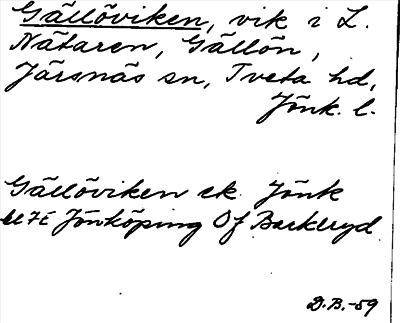 Gällöviken, vik i L.
Nätaren, Gällön,
Järsnäs sn, Tveta hd,
Jönk. l.
Gällöviken ek Jönk
7E Jönköping Of Barkeryd
D.B.-59